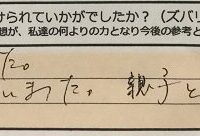 けられていかがでしたか？（ズバリ
想が、私達の何よりの力となり今後の参考と
た。
いました。 親子と